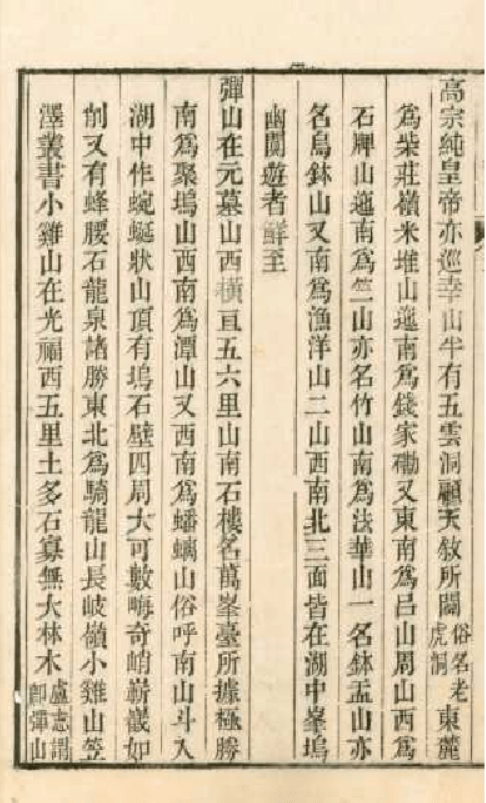 高宗純皇帝亦巡幸山半有五雲洞顧天敘所闢俗名老虎洞東麓
為柴莊嶺米堆山迤南為錢家磡又東南為呂山周山西為
石牌山迤南為竺山亦名竹山南為法華山一名鉢盂山亦
名烏鉢山又南為漁洋山二山西南北三面皆在湖中峯塢
幽閴遊者鮮至
彈山在元墓山西橫亘五六里山南石樓名萬峯臺所據極勝
南為聚塢山西南為潭山又西南為蟠螭山俗呼南山斗入
湖中作蜿蜒狀山頂有塢石壁四周大可數畮奇峭嶄巀如
削又有蜂腰石龍泉諸勝東北為騎龍山長岐嶺小雞山笠
澤叢書小雞山在光福西五里土多石寡無大林木盧志謂卽彈山